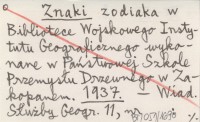 Znaki zodiaka w
Bibliotece Wojskowego Insty-
tutu Geograficznego wyko-
nane w Państwowej Szkole
Przemysłu Drzewnego w Za-
kopanem. 1937. — Wiad.
Służby Geogr. 11, n
%